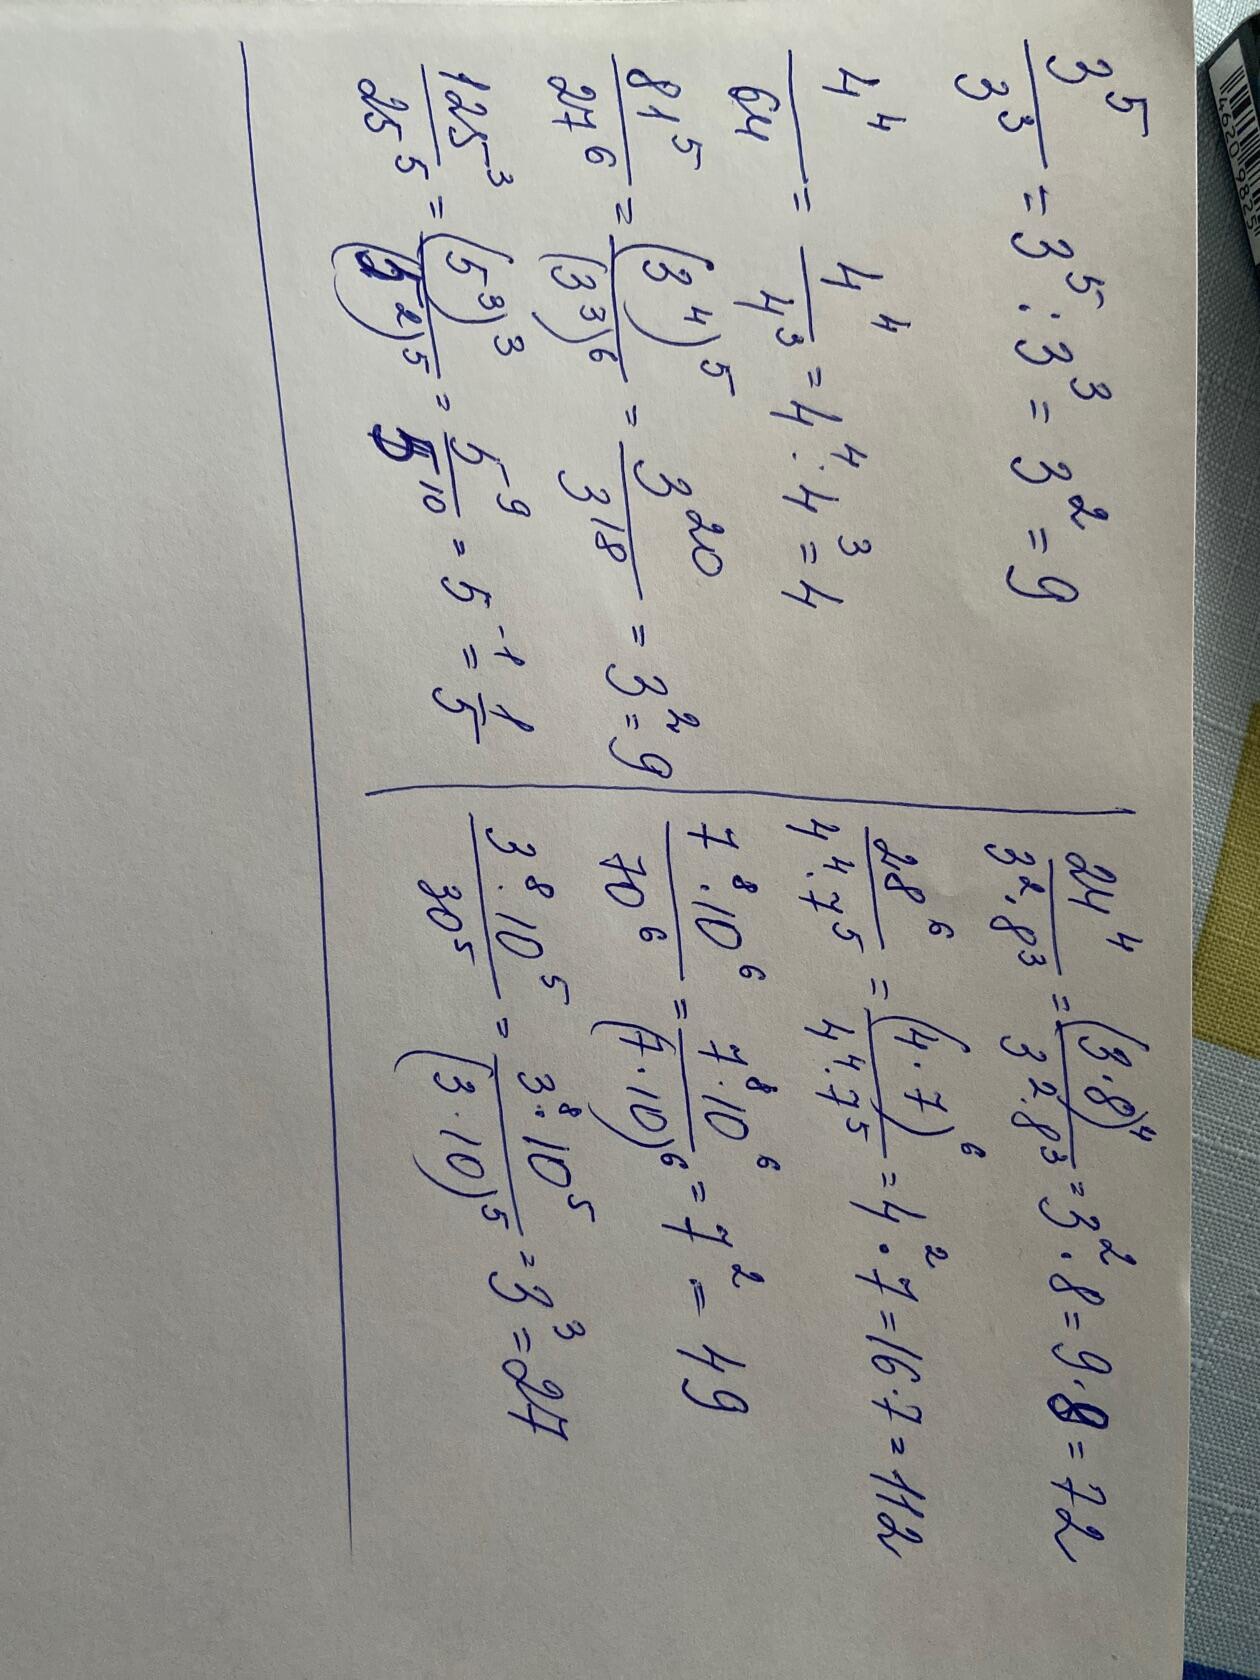 3⁵/3³ = 3⁵ : 3³ = 3² = 9
4⁴/64 = 4⁴/4³ = 4⁴ : 4³ = 4
81⁵/27⁶ = (3⁴)⁵/(3³)⁶ = 3²⁰/3¹⁸ = 3² = 9
125³/25⁵ = (5³)³/(5²)⁵ = 5⁹/5¹⁰ = 5⁻¹ = 1/5
24⁴/3²·8³ = (3·8)⁴/3²·8³ = 3²·8 = 9·8 = 72
28⁶/4⁴·7⁵ = (4·7)⁶/4⁴·7⁵ = 4²·7 = 16·7 = 112
7⁸·10⁶/70⁶ = 7⁸·10⁶/(7·10)⁶ = 7² = 49
3⁸·10⁵/30⁵ = 3⁸·10⁵/(3·10)⁵ = 3³ = 27